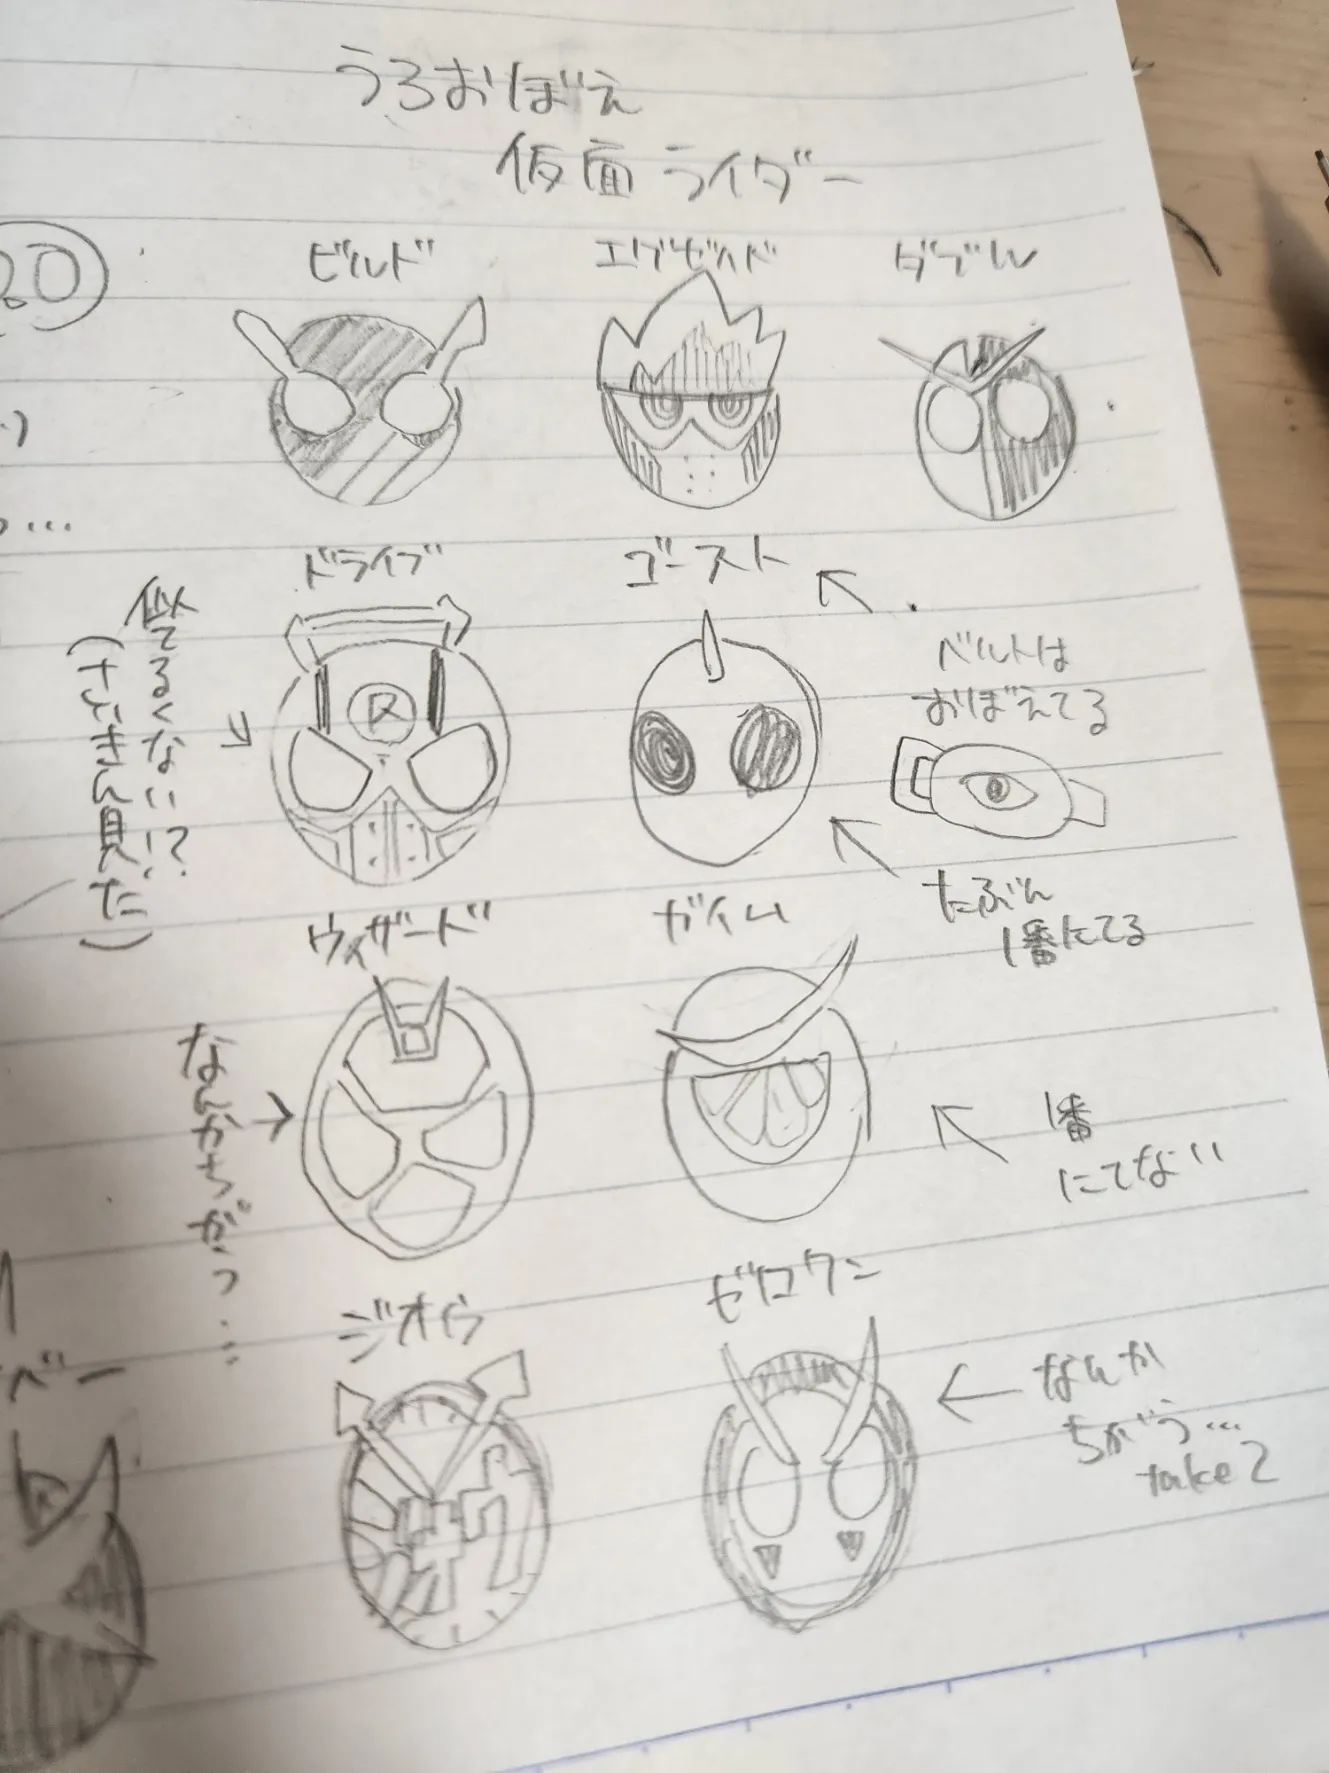 うろおぼえ
仮面ライダー
2.0
ビルド
エグゼイド
ダブル
ドライブ
ゴースト
似てるくない!?
(さっき見た)
ベルトは
おぼえてる
たぶん
1番にてる
ウィザード
ガイム
なんかちがう…
1番
にてない
ジオウ
ゼロワン
なんか
ちがう…
take 2
ベー
R